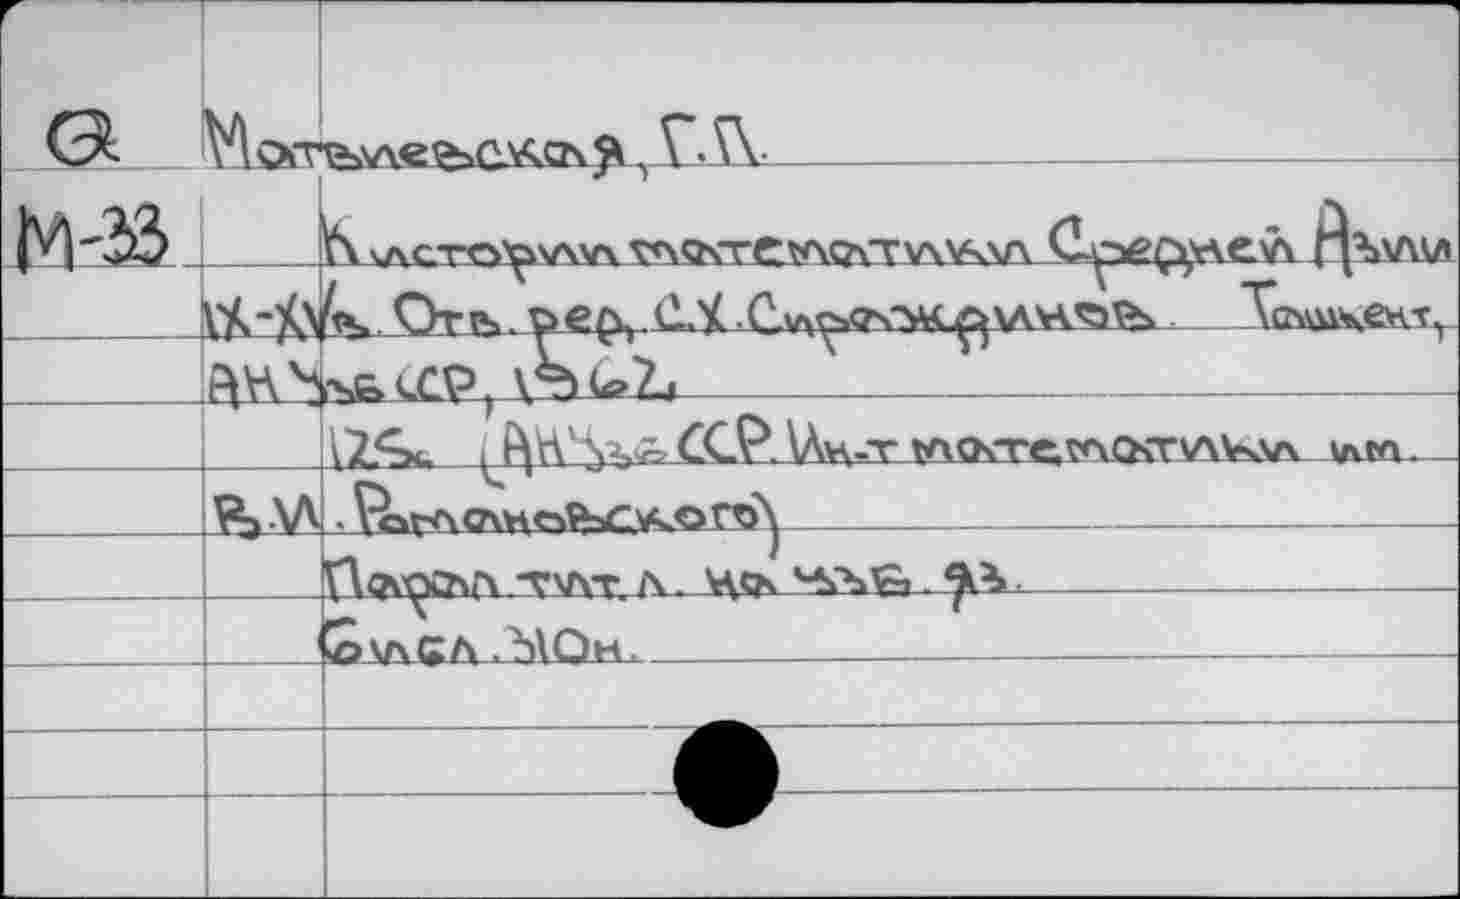 Матвиевская, Г.П.
М-33
К истории математики Средней Азии
IX-XVв. Отв. ред. С.Х.Сираждинов. Ташкент,
АН УзбССР, 1962.
125с. (АН УзбССР. Ин-т математики им.
В.И.Романовского)
Парал. тит. л. на узб. яз.